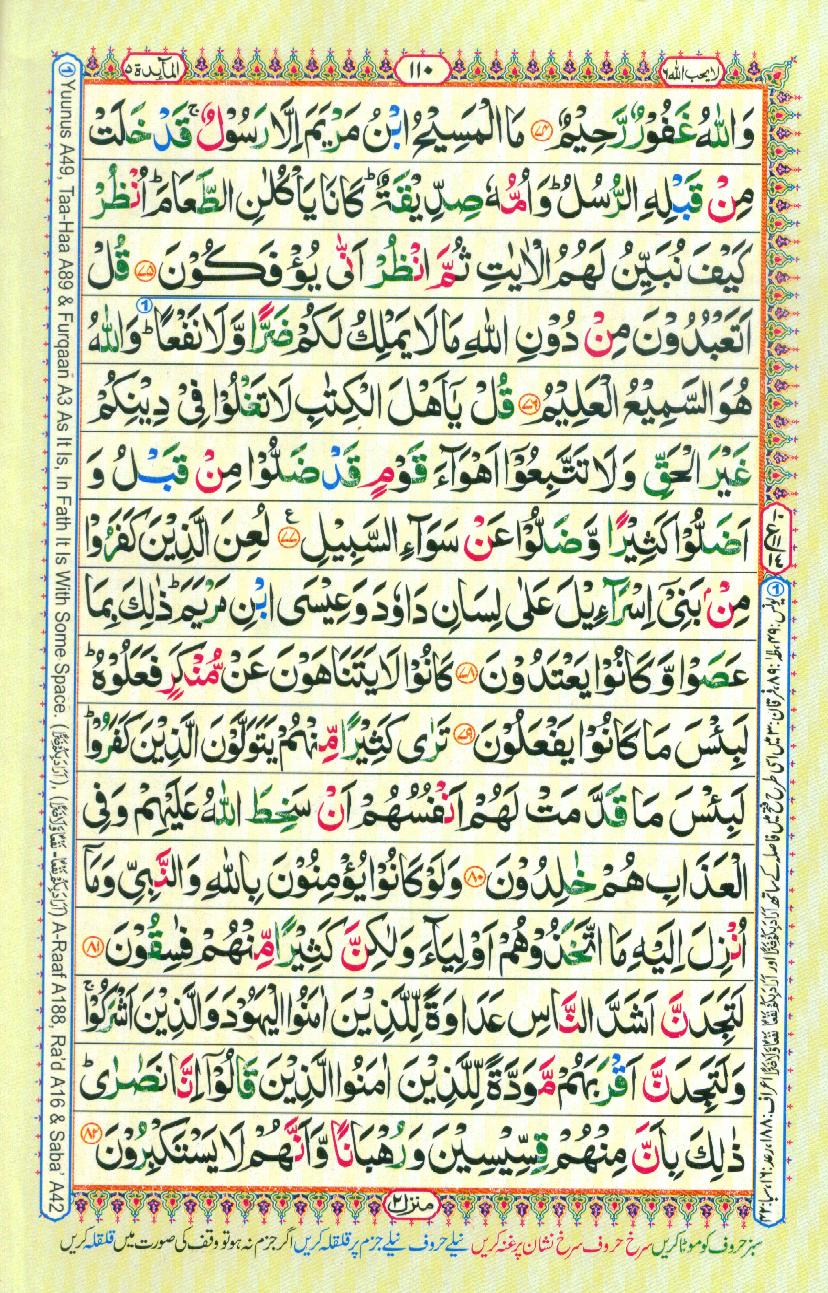 لا يحب الله ٦
١١٠
المآيدة ٥
وَاللّٰهُ غَفُوْرٌ رَّحِيْمٌ ﴿۷۴﴾ مَا الْمَسِيْحُ ابْنُ مَرْيَمَ اِلَّا رَسُوْلٌ ۚ قَدْ خَلَتْ
مِنْ قَبْلِهِ الرُّسُلُ ؕ وَاُمُّهٗ صِدِّيْقَةٌ ؕ كَانَا يَاْكُلٰنِ الطَّعَامَ ؕ اُنْظُرْ
كَيْفَ نُبَيِّنُ لَهُمُ الْاٰيٰتِ ثُمَّ انْظُرْ اَنّٰى يُؤْفَكُوْنَ ﴿۷۵﴾ قُلْ
اَتَعْبُدُوْنَ مِنْ دُوْنِ اللّٰهِ مَا لَا يَمْلِكُ لَكُمْ ضَرًّا وَّلَا نَفْعًا ؕ وَاللّٰهُ
هُوَ السَّمِيْعُ الْعَلِيْمُ ﴿۷۶﴾ قُلْ يٰۤاَهْلَ الْكِتٰبِ لَا تَغْلُوْا فِيْ دِيْنِكُمْ
غَيْرَ الْحَقِّ وَلَا تَتَّبِعُوْۤا اَهْوَآءَ قَوْمٍ قَدْ ضَلُّوْا مِنْ قَبْلُ وَ
اَضَلُّوْا كَثِيْرًا وَّضَلُّوْا عَنْ سَوَآءِ السَّبِيْلِ ﴿۷۷﴾ لُعِنَ الَّذِيْنَ كَفَرُوْا
مِنْۢ بَنِيْۤ اِسْرَآءِيْلَ عَلٰى لِسَانِ دَاوٗدَ وَعِيْسَى ابْنِ مَرْيَمَ ؕ ذٰلِكَ بِمَا
عَصَوْا وَّكَانُوْا يَعْتَدُوْنَ ﴿۷۸﴾ كَانُوْا لَا يَتَنَاهَوْنَ عَنْ مُّنْكَرٍ فَعَلُوْهُ ؕ
لَبِئْسَ مَا كَانُوْا يَفْعَلُوْنَ ﴿۷۹﴾ تَرٰى كَثِيْرًا مِّنْهُمْ يَتَوَلَّوْنَ الَّذِيْنَ كَفَرُوْا ؕ
لَبِئْسَ مَا قَدَّمَتْ لَهُمْ اَنْفُسُهُمْ اَنْ سَخِطَ اللّٰهُ عَلَيْهِمْ وَفِي
الْعَذَابِ هُمْ خٰلِدُوْنَ ﴿۸۰﴾ وَلَوْ كَانُوْا يُؤْمِنُوْنَ بِاللّٰهِ وَالنَّبِيِّ وَمَاۤ
اُنْزِلَ اِلَيْهِ مَا اتَّخَذُوْهُمْ اَوْلِيَآءَ وَلٰكِنَّ كَثِيْرًا مِّنْهُمْ فٰسِقُوْنَ ﴿۸۱﴾
لَتَجِدَنَّ اَشَدَّ النَّاسِ عَدَاوَةً لِّلَّذِيْنَ اٰمَنُوا الْيَهُوْدَ وَالَّذِيْنَ اَشْرَكُوْا ۚ
وَلَتَجِدَنَّ اَقْرَبَهُمْ مَّوَدَّةً لِّلَّذِيْنَ اٰمَنُوا الَّذِيْنَ قَالُوْۤا اِنَّا نَصٰرٰى ؕ
ذٰلِكَ بِاَنَّ مِنْهُمْ قِسِّيْسِيْنَ وَرُهْبَانًا وَّاَنَّهُمْ لَا يَسْتَكْبِرُوْنَ ﴿۸۲﴾
منزل ٢
سبز حروف کو موٹا کریں سرخ حروف سرخ نشان پر غنہ کریں نیلے حروف نیلے جزم پر قلقلہ کریں اگر جزم نہ ہو تو وقف کی صورت میں قلقلہ کریں
Yuunus A49, Taa-Haa A89 & Furqaan A3 As It Is, In Fath It Is With Some Space. A-Raaf A188, Ra'd A16 & Saba' A42